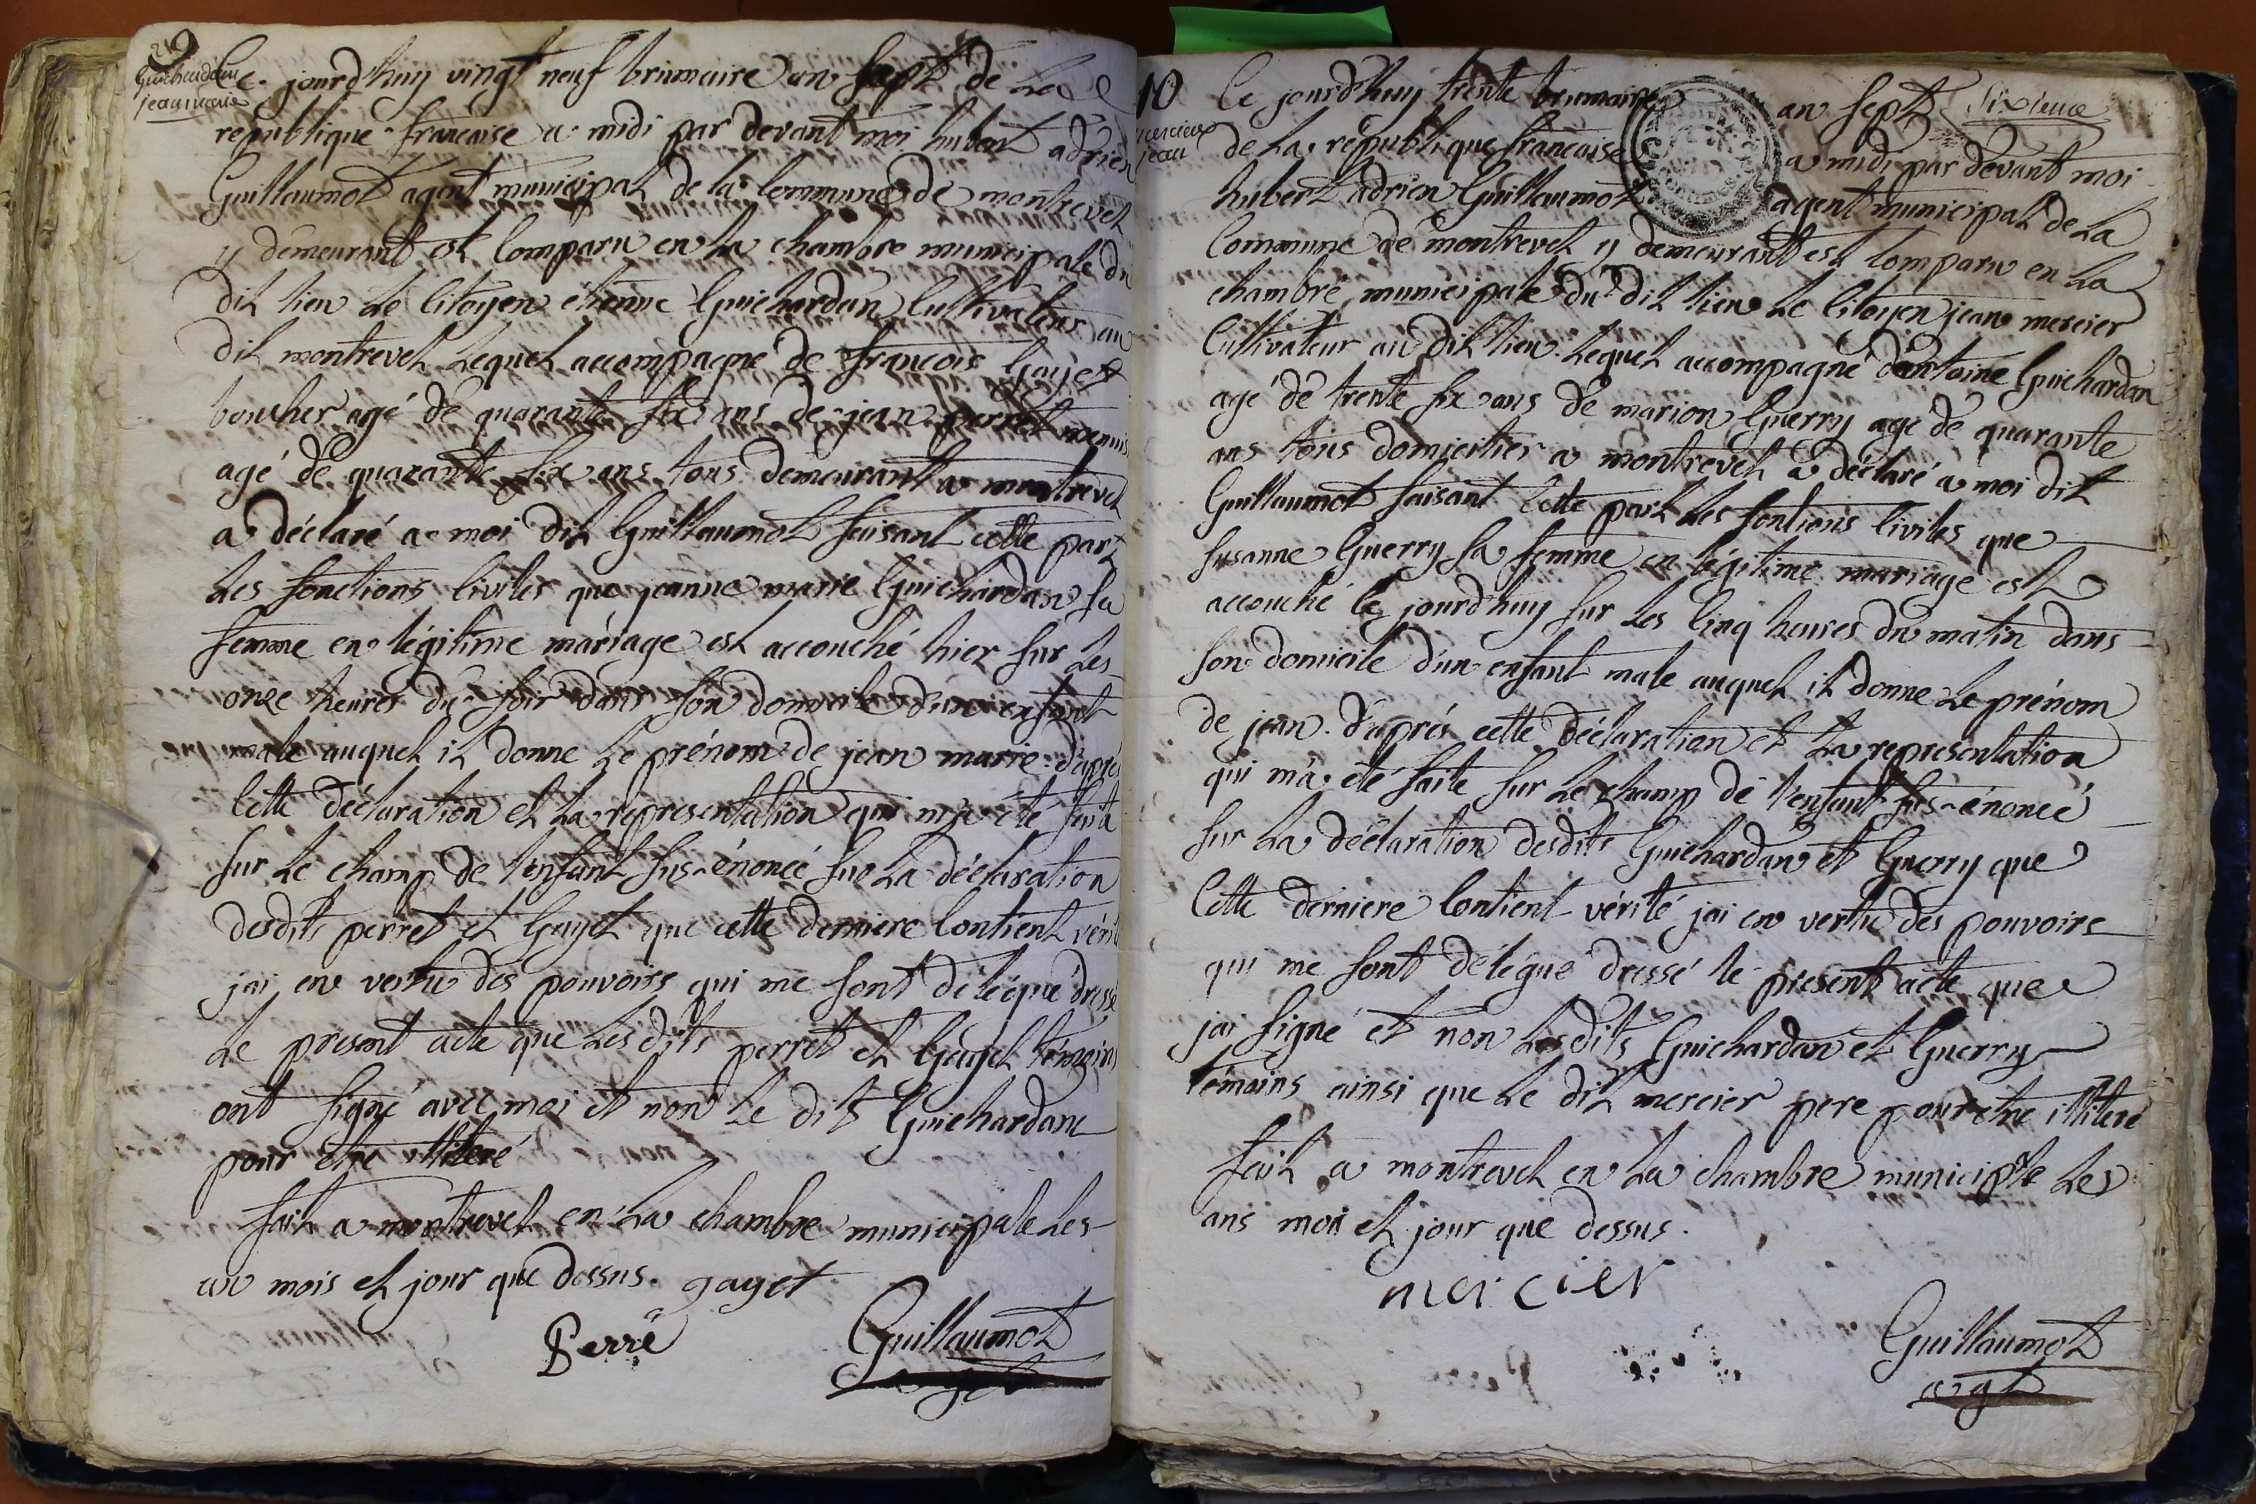 9
Guichardan
jean marie
Ce jourd'huy vingt neuf brumaire an sept de La
republique francaise a midi par devant moi hubert adrien
Guillaumot agent municipal de la Commune de montrevel
y demeurant est Comparu en La chambre municipale du
dit lieu Le Citoyen etienne Guichardan Cultivateur au
dit montrevel Lequel accompagné de francois Gayet
boucher agé de quarante six ans de jean perret
agé de quarante six ans tous demeurant a montrevel
a déclaré a moi dit Guillaumot faisant cette part
Les fonctions Civiles que jeanne marie Guichardan sa
femme en légitime mariage est accouché hier sur Les
onze heures du soir dans son domicile d'un enfant
male auquel il donne Le prénom de jean marie d'après
Cette déclaration et La representation qui m'a été faite
sur Le champ de l'enfant sus-énoncé sur La déclaration
desdits perret et Gayet que cette derniere Contient vérité
jai en vertu des pouvoirs qui me sont délégué dressé
Le present acte que Lesdits perret et Gayet témoins
ont signé avec moi et non Le dit Guichardan
pour etre illiteré
fait a montrevel en La chambre municipale Les
an mois et jour que dessus. gayet
Perré Guillaumot
agt
10
mercier
jean
Ce jourd'huy trente brumaire an sept Sixieme
de La république francaise a midi par devant moi
hubert adrien Guillaumot agent municipal de La
Commune de montrevel y demeurant est Comparu en La
chambre municipale du dit lieu Le Citoyen jean mercier
Cultivateur au dit lieu Lequel accompagné d'antoine Guichardan
agé de trente six ans de marion Guerry agé de quarante
ans tous domicilier a montrevel a déclaré a moi dit
Guillaumot faisant Cette part Les fontions Civiles que
susanne Guerry sa femme en légitime mariage est
accouché Ce jourd'huy sur Les Cinq heures du matin dans
son domicile d'un enfant male auquel il donne Le prénom
de jean. d'après cette déclaration et La representation
qui m'a été faite sur Le champ de l'enfant sus-énoncé
sur La déclaration desdits Guichardan et Guerry que
Cette derniere Contient vérité jai en vertu des pouvoirs
qui me sont délégué dressé le présent acte que
jai signé et non Lesdits Guichardan et Guerry
témoins ainsi que Le dit mercier pere pour etre illiteré
fait a montrevel en La chambre municiple Les
ans mois et jour que dessus.
mercier
Guillaumot
agt